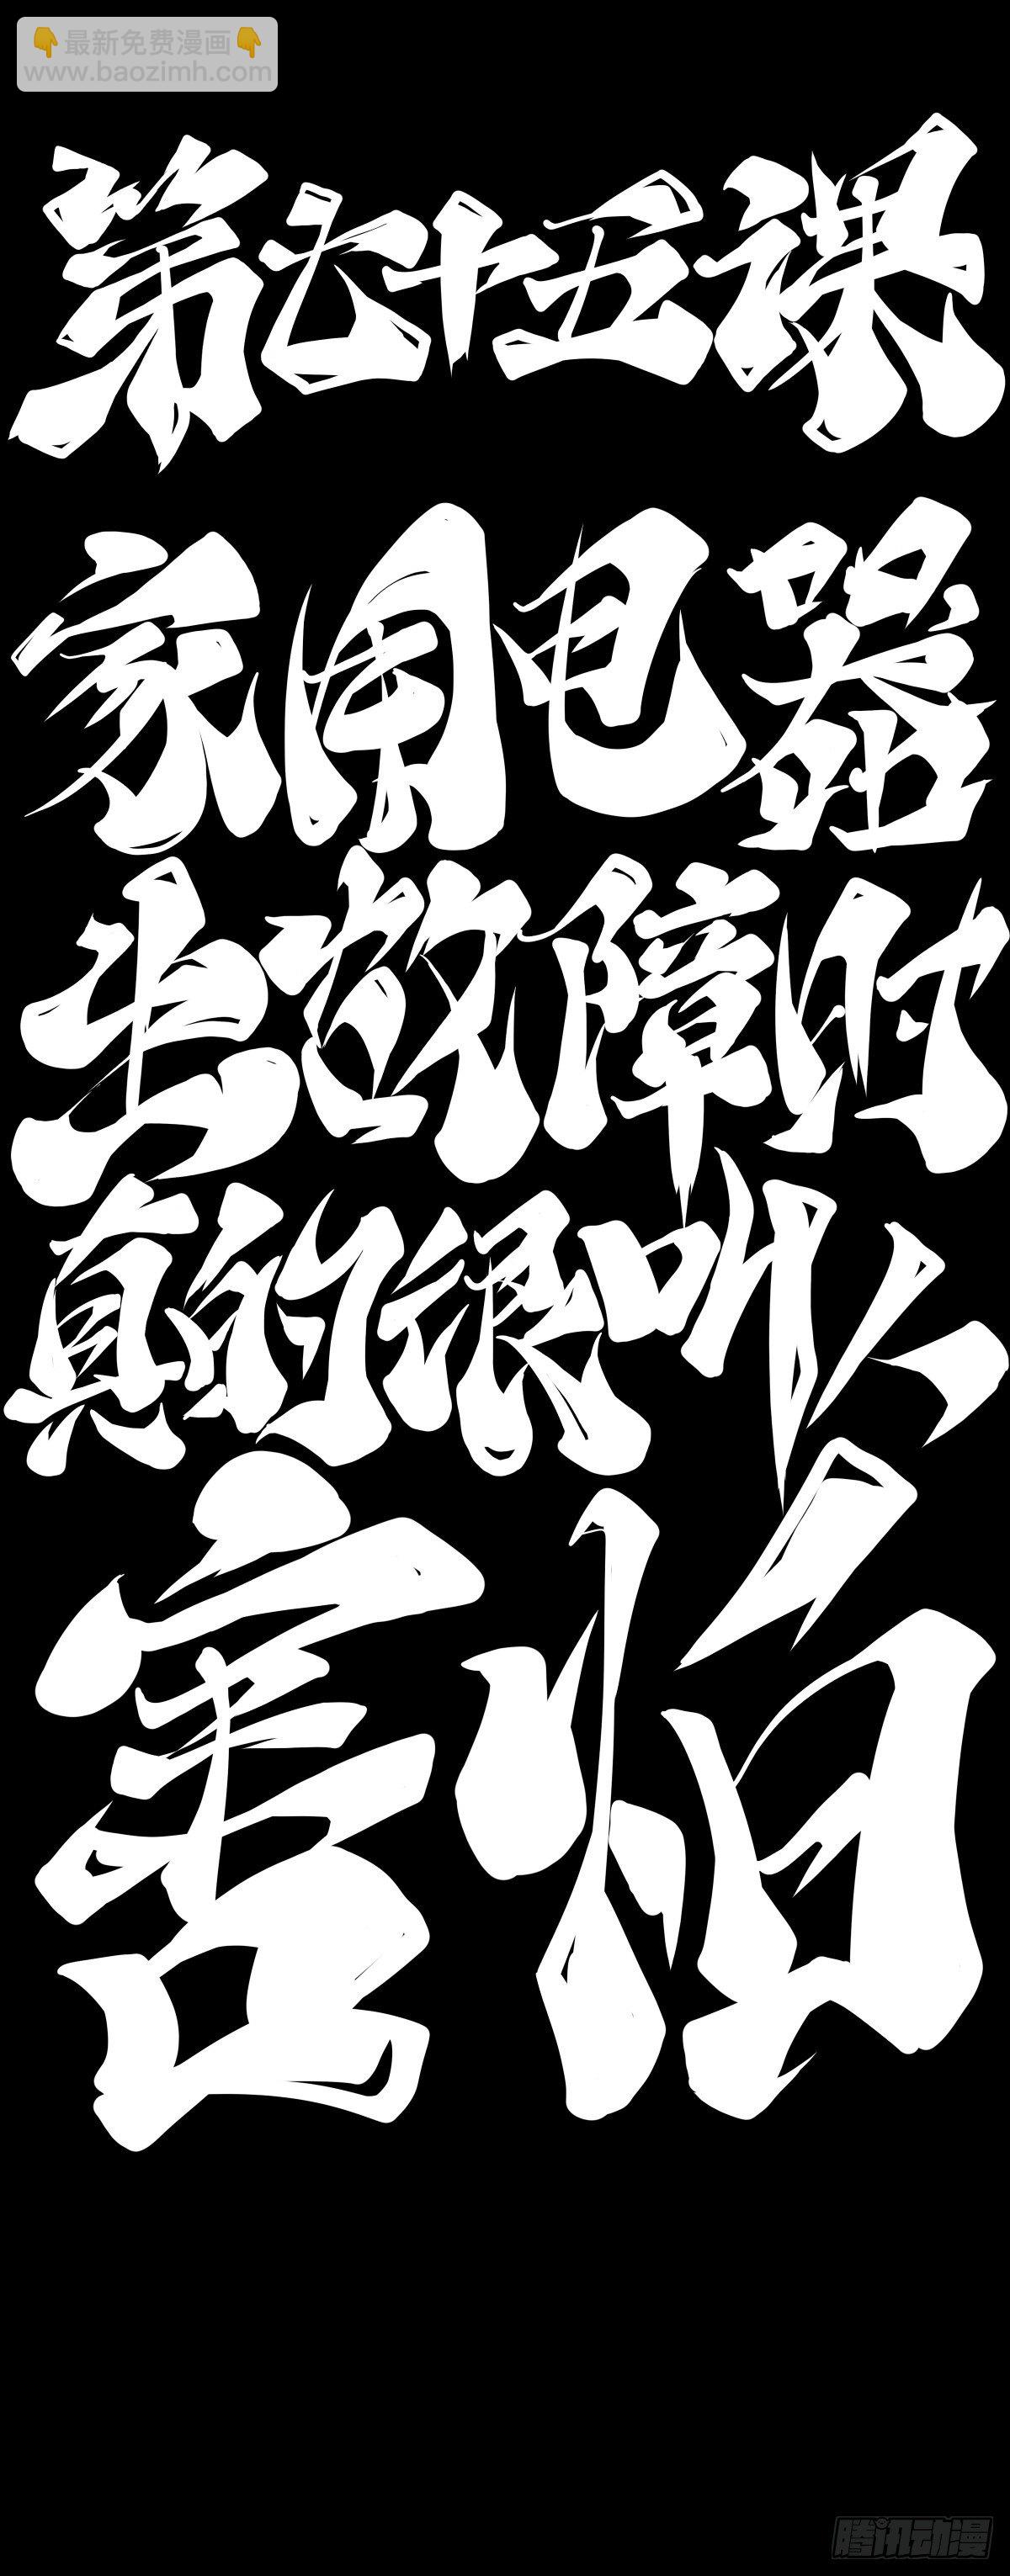 👇最新免费漫画👇
www.baozimh.com
第七十五课
家用电器
出故障时
真的很叫人
害怕
腾讯动漫